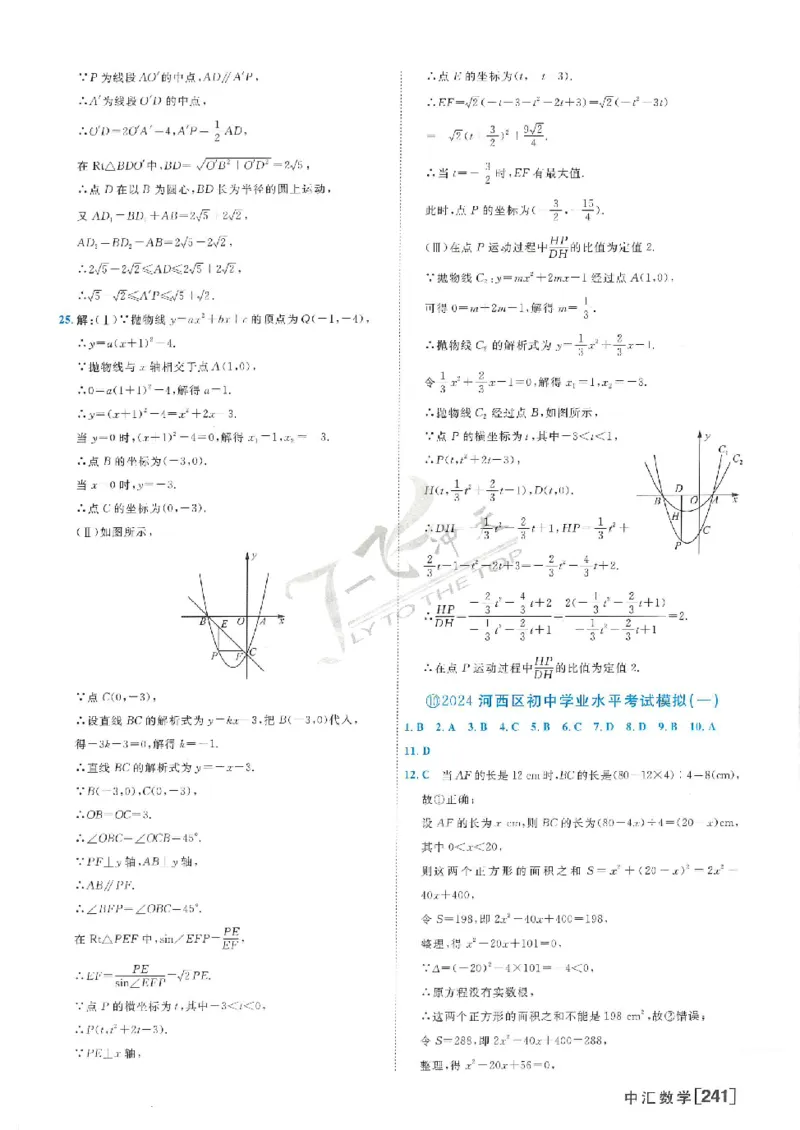 ∵P为线段AO′的中点,AD∥A′P,
∴A′为线段O′D的中点,
∴O′D=2O′A′=4,A′P=1/2 AD,
在Rt△BDO′中,BD=√(O′B²+O′D²)=2√5,
∴点D在以B为圆心,BD长为半径的圆上运动,
又AD₁=BD₁+AB=2√5+2√2,
AD₂=BD₂-AB=2√5-2√2,
∴2√5-2√2≤AD≤2√5+2√2,
∴√5-√2≤A′P≤√5+√2.
25.解:(Ⅰ)∵抛物线y=ax²+bx+c的顶点为Q(-1,-4),
∴y=a(x+1)²-4.
∵抛物线与x轴相交于点A(1,0),
∴0=a(1+1)²-4,解得a=1.
∴y=(x+1)²-4=x²+2x-3.
当y=0时,(x+1)²-4=0,解得x₁=1,x₂=-3.
∴点B的坐标为(-3,0).
当x=0时,y=-3.
∴点C的坐标为(0,-3).
(Ⅱ)如图所示,
y
B E O A x
P F C
∵点C(0,-3),
∴设直线BC的解析式为y=kx-3,把B(-3,0)代入,
得-3k-3=0,解得k=-1.
∴直线BC的解析式为y=-x-3.
∵B(-3,0),C(0,-3),
∴OB=OC=3.
∴∠OBC=∠OCB=45°.
∵PF⊥y轴,AB⊥y轴,
∴AB∥PF.
∴∠BFP=∠OBC=45°.
在Rt△PEF中,sin∠EFP=PE/EF,
∴EF=PE/sin∠EFP=√2PE.
∵点P的横坐标为t,其中-3<t<0,
∴P(t,t²+2t-3).
∵PE⊥x轴,
∴点E的坐标为(t,-t-3).
∴EF=√2(-t-3-t²-2t+3)=√2(-t²-3t)
=-√2(t+3/2)²+9√2/4
∴当t=-3/2时,EF有最大值.
此时,点P的坐标为(-3/2,-15/4).
(Ⅲ)在点P运动过程中HP/DH的比值为定值2.
∵抛物线C₂:y=mx²+2mx-1经过点A(1,0),
可得0=m+2m-1,解得m=1/3.
∴抛物线C₂的解析式为y=1/3x²+2/3x-1.
令1/3x²+2/3x-1=0,解得x₁=1,x₂=-3.
∴抛物线C₂经过点B,如图所示,
∵点P的横坐标为t,其中-3<t<1,
∴P(t,t²+2t-3),
H(t,1/3t²+2/3t-1),D(t,0).
y
C₁
C₂
D
B O A x
H
C
P
∴DH=-1/3t²-2/3t+1,HP=1/3t²+
2/3t-1-t²-2t+3=-2/3t²-4/3t+2.
∴HP/DH=(-2/3t²-4/3t+2)/(-1/3t²-2/3t+1)=2(-1/3t²-2/3t+1)/(-1/3t²-2/3t+1)=2.
∴在点P运动过程中HP/DH的比值为定值2.
⑪2024河西区初中学业水平考试模拟(一)
1.B 2.A 3.B 4.C 5.B 6.C 7.D 8.D 9.B 10.A
11.D
12.C 当AF的长是12 cm时,BC的长是(80-12×4)÷4=8(cm),
故①正确;
设AF的长为x cm,则BC的长为(80-4x)÷4=(20-x)cm,
其中0<x<20,
则这两个正方形的面积之和S=x²+(20-x)²=2x²-
40x+400,
令S=198,即2x²-40x+400=198,
整理,得x²-20x+101=0,
∵Δ=(-20)²-4×101=-4<0,
∴原方程没有实数根,
∴这两个正方形的面积之和不能是198 cm²,故②错误;
令S=288,即2x²-40x+400=288,
整理,得x²-20x+56=0,
飞冲天
FLY TO THE TOP
中汇数学[241]